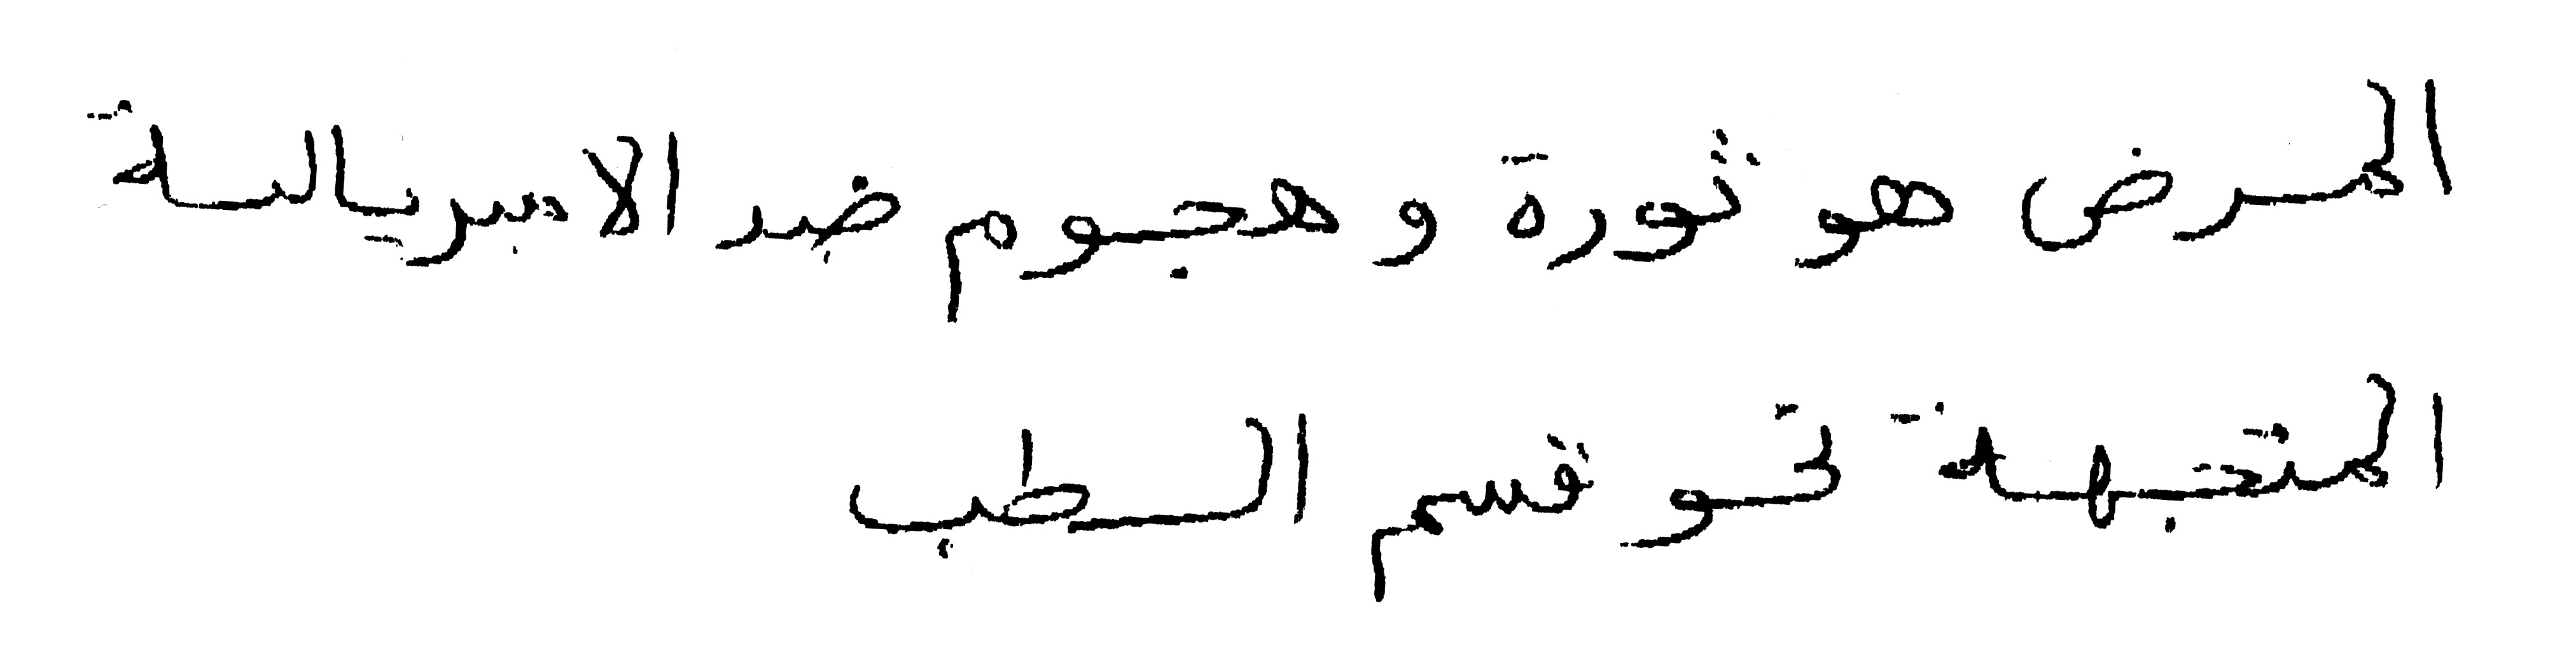 المرض هو ثورة و هجوم ضد الامبريالية
المتجهة نحو قسم الطب